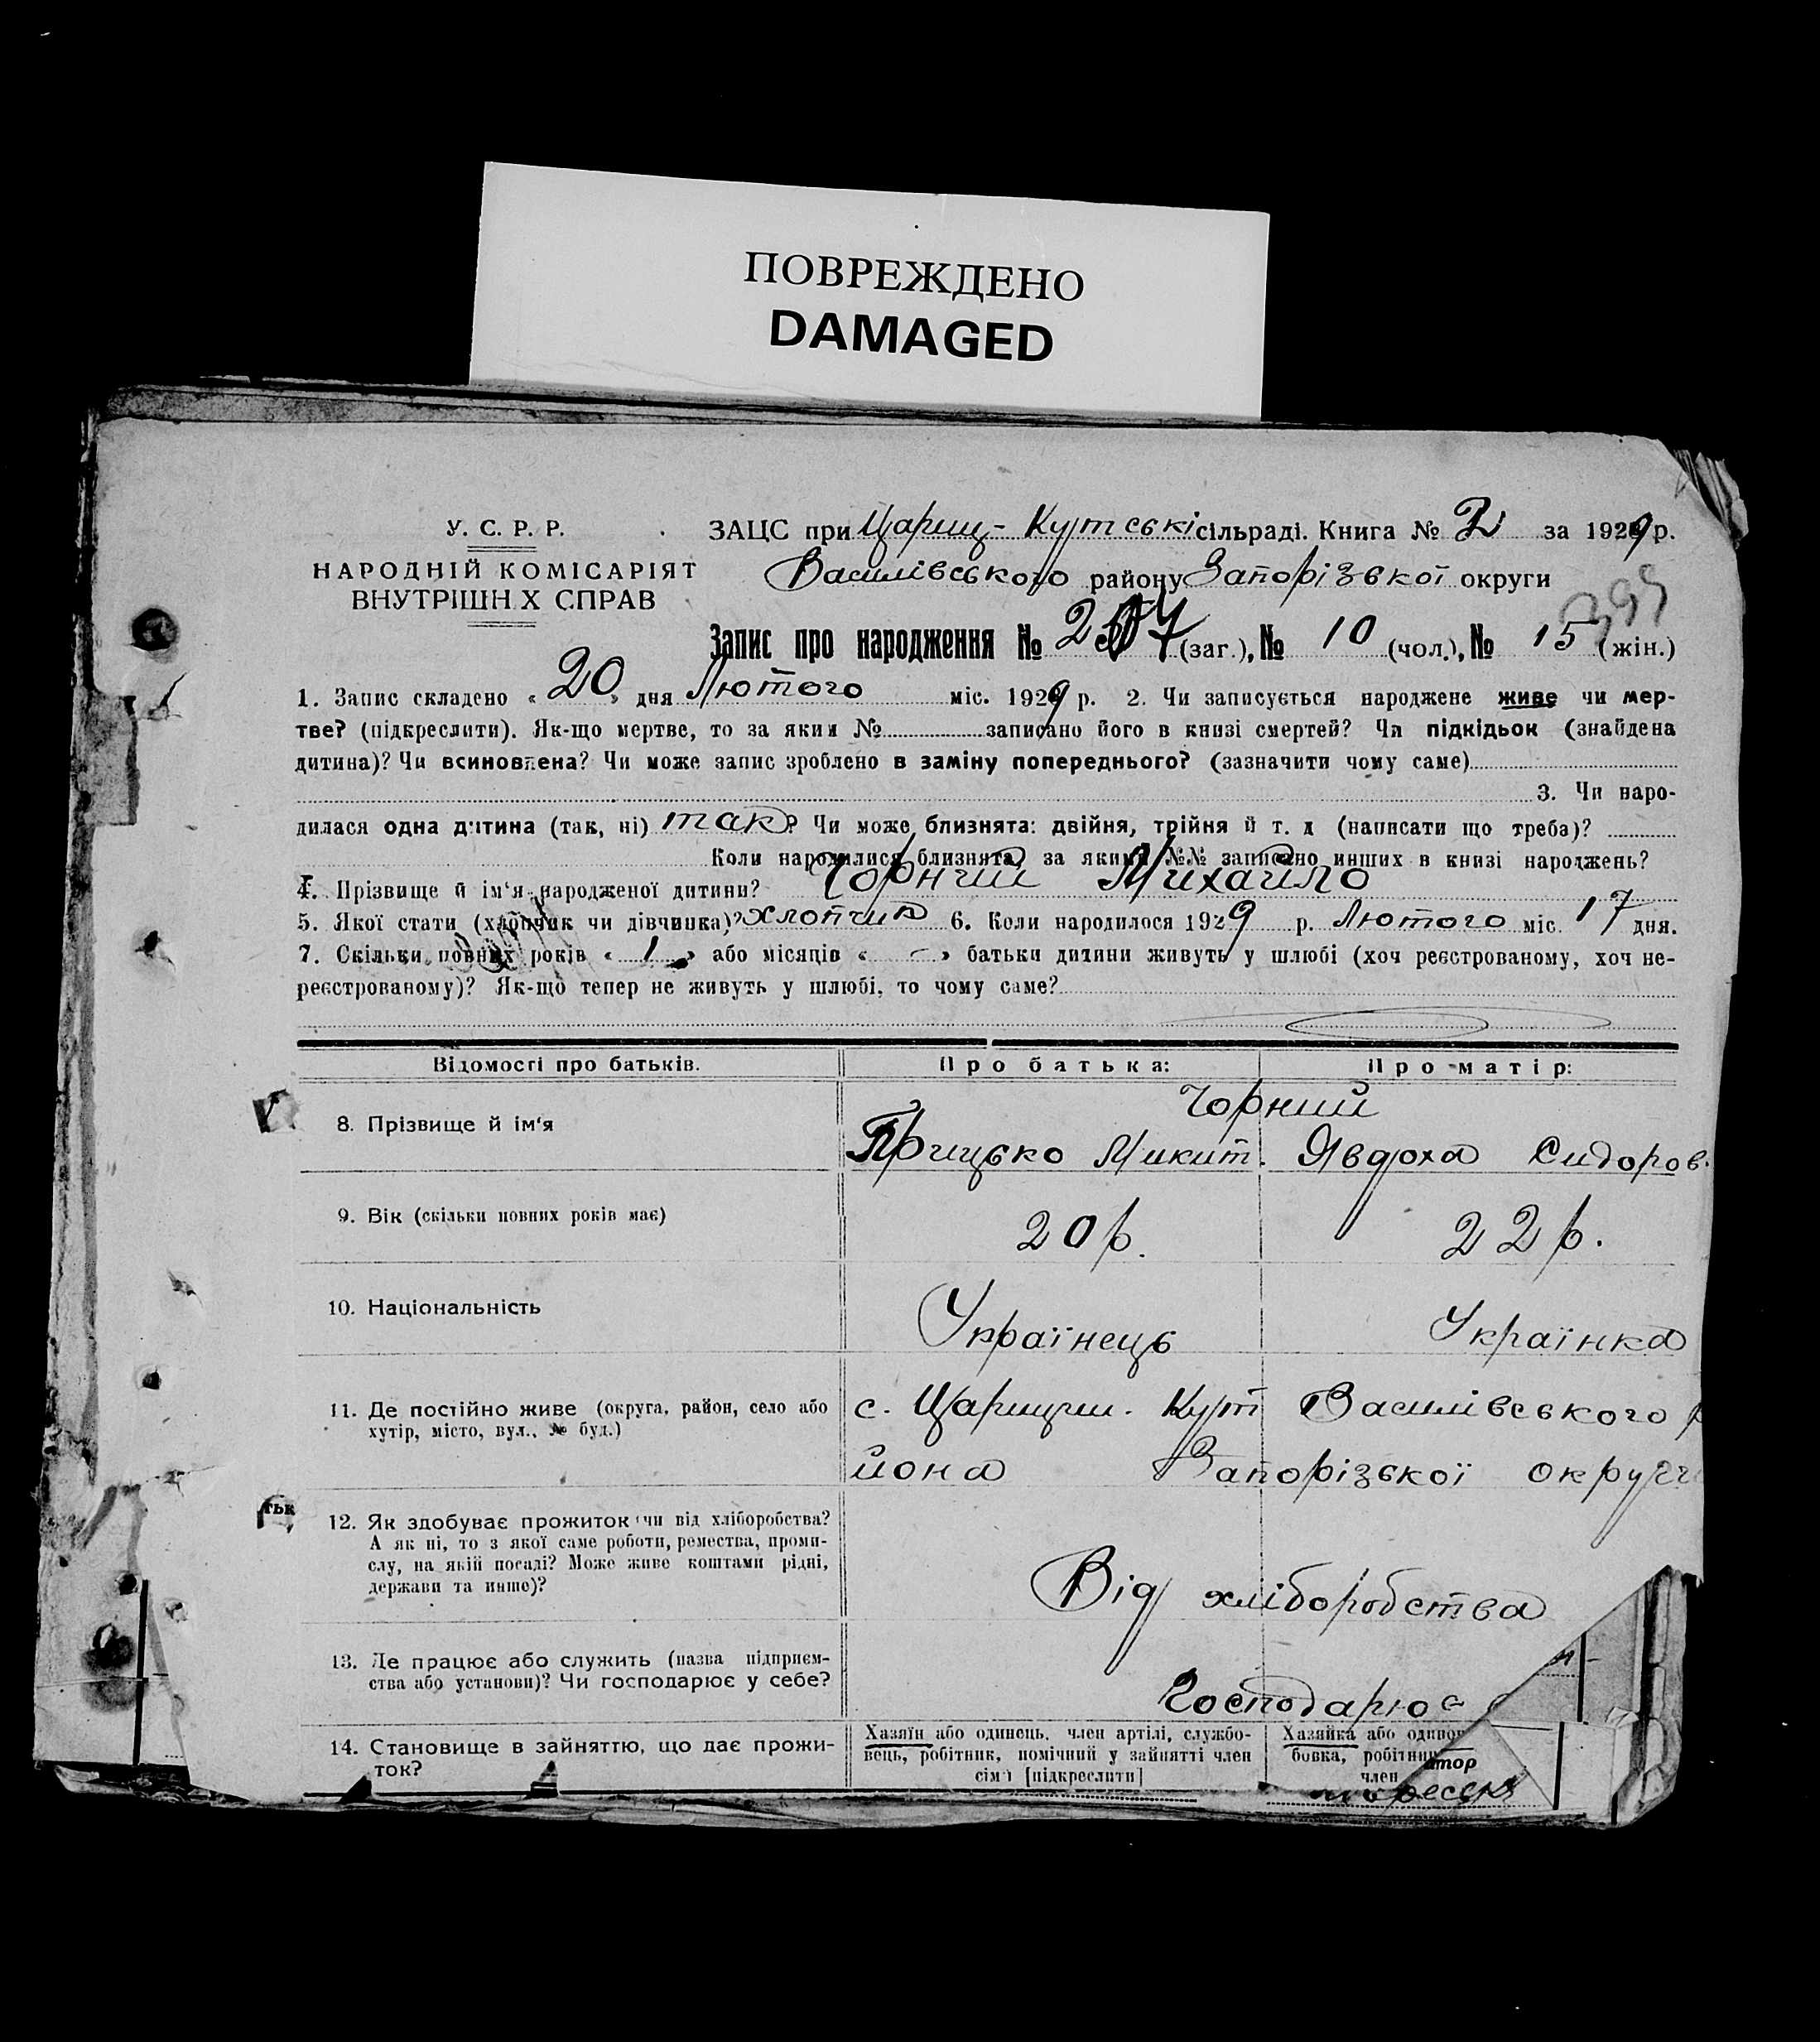 ПОВРЕЖДЕНО
DAMAGED
У. С. Р. Р.
НАРОДНІЙ КОМІСАРІЯТ
ВНУТРІШН Х СПРАВ
ЗАЦС при Цариц-Кутські сільраді. Книга № 2 за 1929 р.
Василівського району Запорізької округи
Запис про народження № (заг.), № 10 (чол.), № 15 (жін.)
1. Запис складено « 20 » дня Лютого міс. 1929 р. 2. Чи записується народжене живе чи мер-
тве? (підкреслити). Як-що мертве, то за яким № записано його в книзі смертей? Чи підкідьок (знайдена
дитина)? Чи всиновлена? Чи може запис зроблено в заміну попереднього? (зазначити чому саме)
3. Чи наро-
дилася одна дитина (так, ні) так? Чи може близнята: двійня, трійня й т. д (написати що треба)?
Коли народилися близнята, за якими №№ записано инших в книзі народжень?
4. Прізвище й ім'я народженої дитини? Чорний Михайло
5. Якої стати (хлопчик чи дівчинка)? хлопчик 6. Коли народилося 1929 р. Лютого міс. 17 дня.
7. Скільки повних років « 1 » або місяців « - » батьки дитини живуть у шлюбі (хоч реєстрованому, хоч не-
реєстрованому)? Як-що тепер не живуть у шлюбі, то чому саме?
Відомості про батьків. Про батька: Про матір:
Чорний
8. Прізвище й ім'я Грицько Микит. Явдоха Сидоров.
9. Вік (скільки повних років має) 20 р. 22 р.
10. Національність Українець Українка
11. Де постійно живе (округа, район, село або
хутір, місто, вул., № буд.)
с. Царицин. Кут Василівського р
йона Запорізької округи
тьк
12. Як здобуває прожиток чи від хліборобства?
А як ні, то з якої саме роботи, ремества, проми-
слу, на якій посаді? Може живе коштами рідні,
держави та инше)?
Від хліборобства
13. Де працює або служить (назва підприєм-
ства або установи)? Чи господарює у себе?
Господарює
14. Становище в зайняттю, що дає прожи-
ток?
Хазяїн або одинець, член артілі, службо-
вець, робітник, помічний у зайнятті член
сім'ї [підкреслити]
Хазяйка або одинок
бовка, робітниц
член